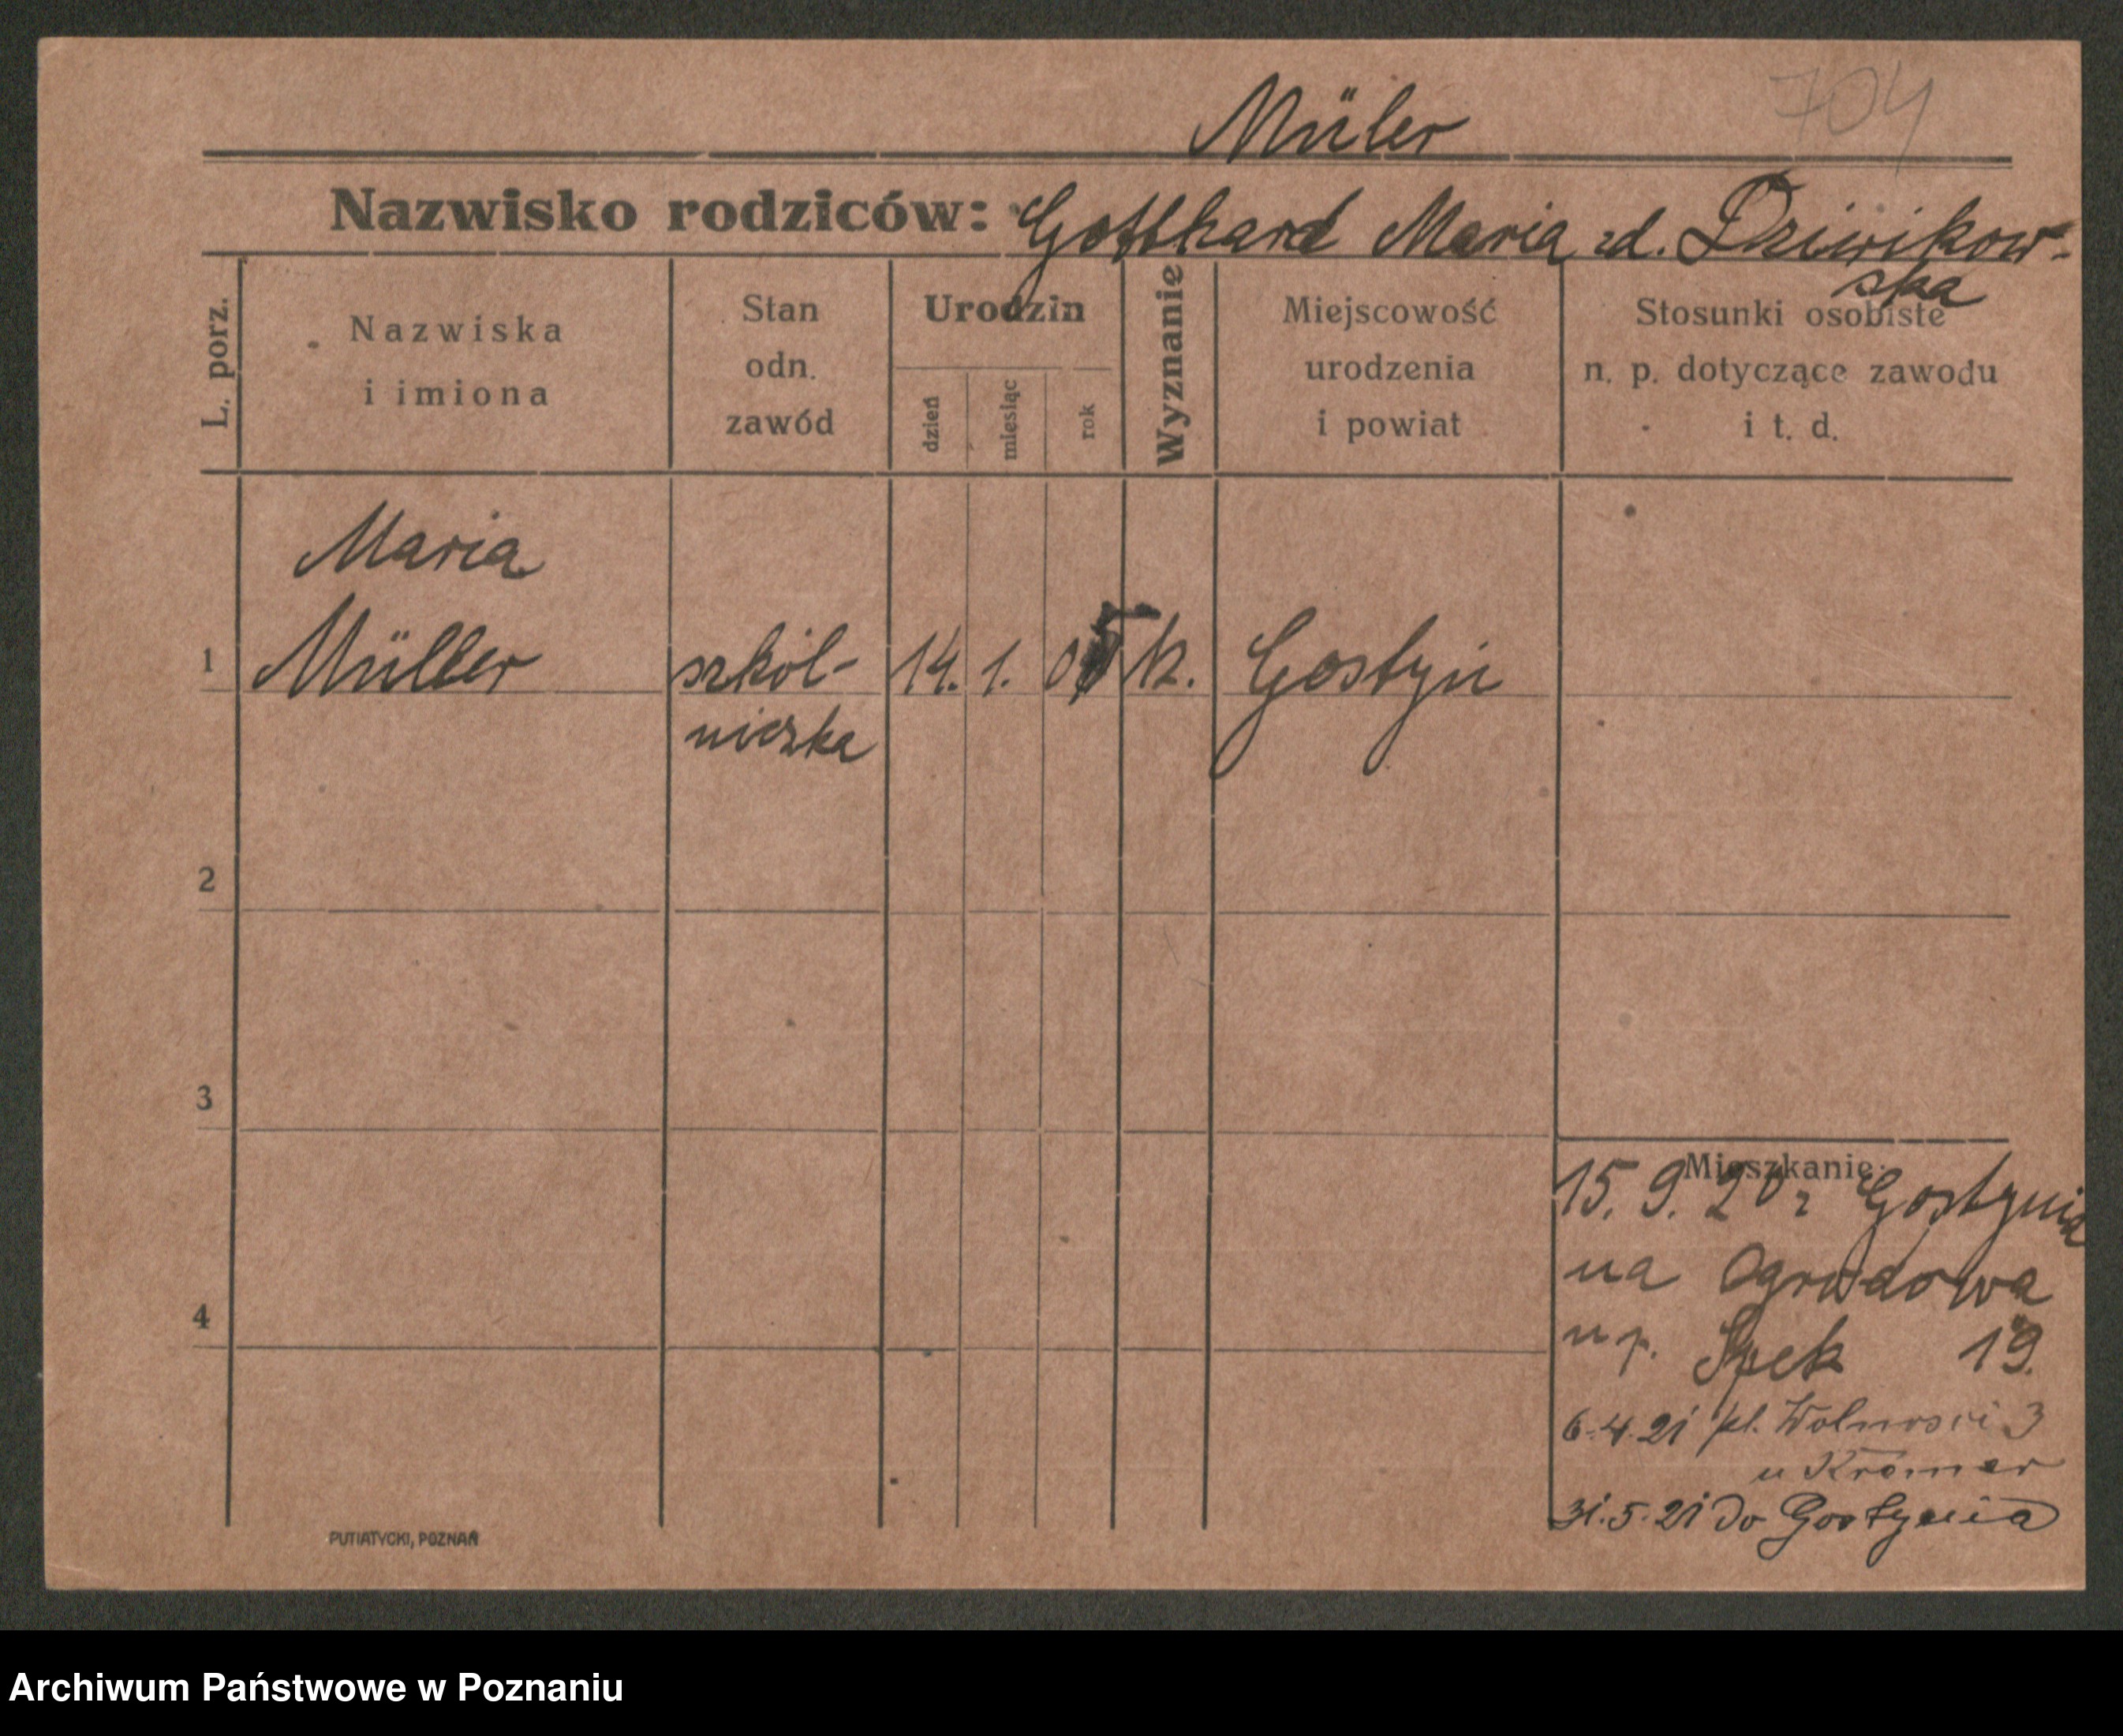 704
Müler
Nazwisko rodziców: Gotthard Maria zd. Dziwikow-
ska
L. porz.
Nazwiska
i imiona
Stan
odn.
zawód
Urodzin
dzień
miesiąc
rok
Wyznanie
Miejscowość
urodzenia
i powiat
Stosunki osobiste
n. p. dotyczące zawodu
i t. d.
Maria
1 Müller szkól- 14. 1. 05 k. Gostyń
niczka
2
3
4
Mieszkanie:
15. 9. 20 z Gostynia
na Ogrodowa
u p. 19.
6.4.21 pl. Wolności 3
u Krömer
31.5.21 do Gostynia
PUTIATYCKI, POZNAŃ
Archiwum Państwowe w Poznaniu